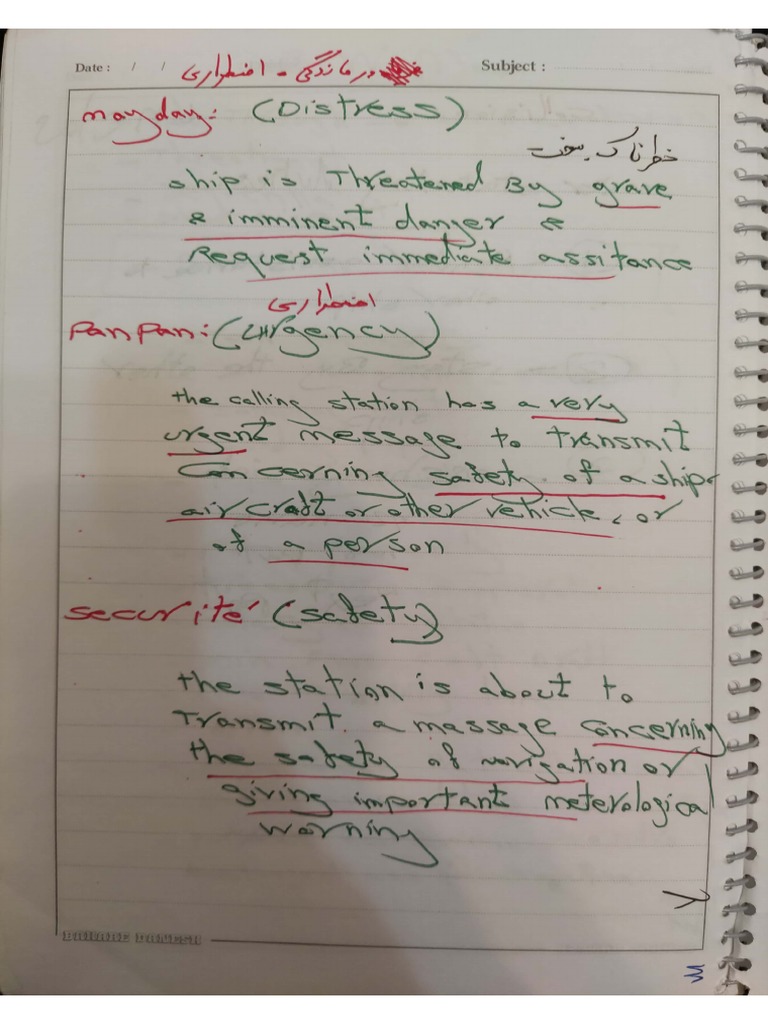 Date : / / درماندگی - اضطراری Subject :
mayday: (Distress)
خطرناک - سخت
Ship is Threatened By grave
& imminent danger &
Request immediate assitance
اضطراری
PanPan: (urgency)
the calling station has a very
urgent message to transmit
Concerning safety of a ship
air craft or other vehicle, or
of a person
securité (safety)
the station is about to
Transmit a massage Concerning
the safety of navigation or
giving important meterological
warning
DANESH